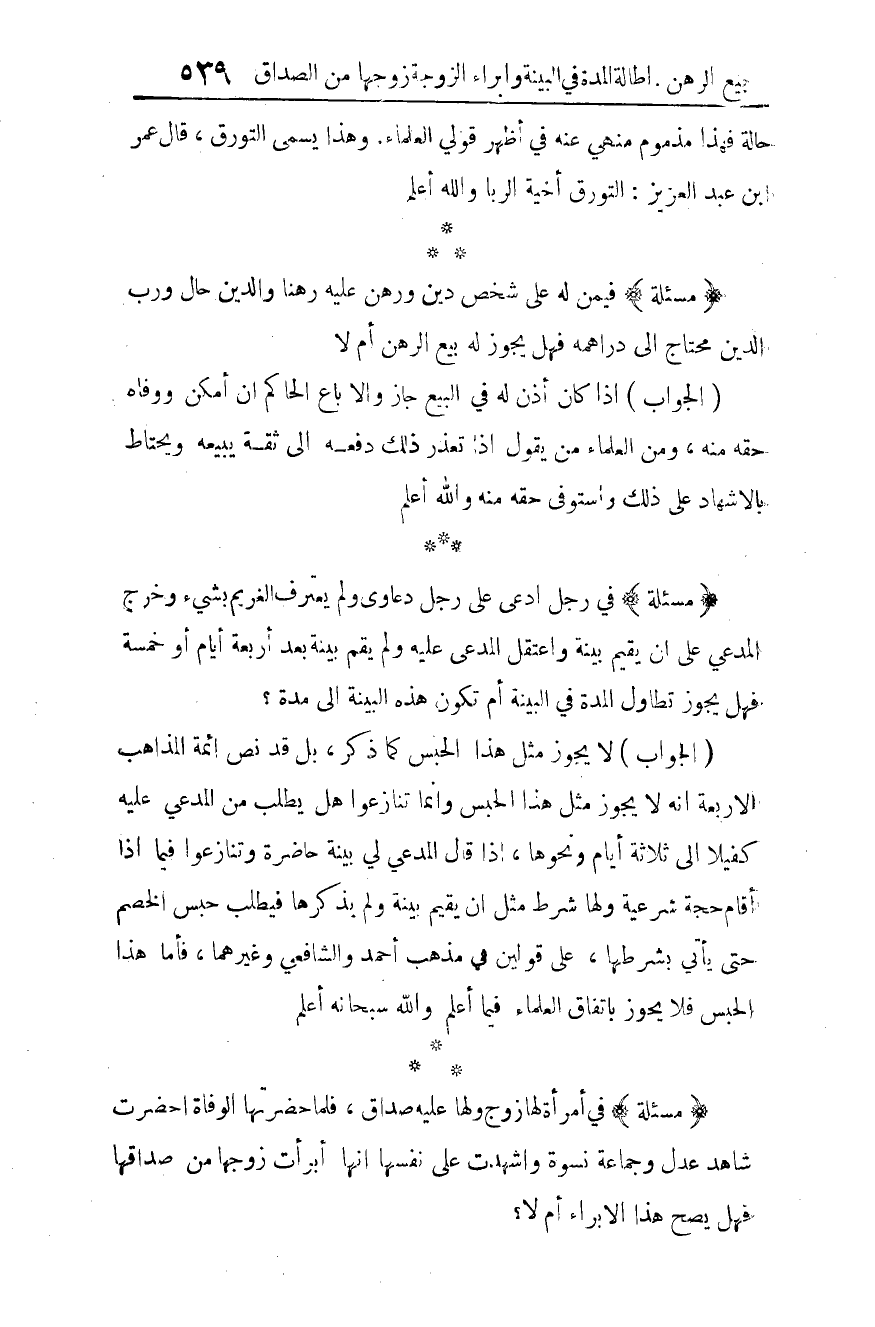 بيع الرهن . اطالة المدة في البينة وابراء الزوجة زوجها من الصداق ٥٣٩
حالة فهذا مذموم منهي عنه في أظهر قولي العلماء. وهذا يسمى التورق ، قال عمر
ابن عبد العزيز : التورق أخية الربا والله أعلم
*
* *
﴿ مسئلة ﴾ فيمن له على شخص دين ورهن عليه رهنا والدين حال ورب
الدين محتاج الى دراهمه فهل يجوز له بيع الرهن أم لا
( الجواب ) اذا كان أذن له في البيع جاز والا باع الحاكم ان أمكن ووفاه
حقه منه ، ومن العلماء من يقول اذا تعذر ذلك دفعه الى ثقة يبيعه ويحتاط
بالاشهاد على ذلك واستوفى حقه منه والله أعلم
***
﴿ مسئلة ﴾ في رجل ادعى على رجل دعاوى ولم يعترف الغريم بشيء وخرج
المدعي على ان يقيم بينة واعتقل المدعى عليه ولم يقم بينة بعد أربعة أيام أو خمسة
فهل يجوز تطاول المدة في البينة أم تكون هذه البينة الى مدة ؟
( الجواب ) لا يجوز مثل هذا الحبس كما ذكر ، بل قد نص ائمة المذاهب
الاربعة انه لا يجوز مثل هذا الحبس وانما تنازعوا هل يطلب من المدعي عليه
كفيلا الى ثلاثة أيام ونحوها ، اذا قال المدعي لي بينة حاضرة وتنازعوا فيما اذا
أقام حجة شرعية ولها شرط مثل ان يقيم بينة ولم يذكرها فيطلب حبس الخصم
حتى يأتي بشرطها ، على قولين في مذهب أحمد والشافعي وغيرهما ، فأما هذا
الحبس فلا يجوز باتفاق العلماء فيما أعلم والله سبحانه أعلم
*
* *
﴿ مسئلة ﴾ في أمرأة لها زوج ولها عليه صداق ، فلما حضرتها الوفاة احضرت
شاهد عدل وجماعة نسوة واشهدت على نفسها انها أبرأت زوجها من صداقها
فهل يصح هذا الابراء أم لا؟